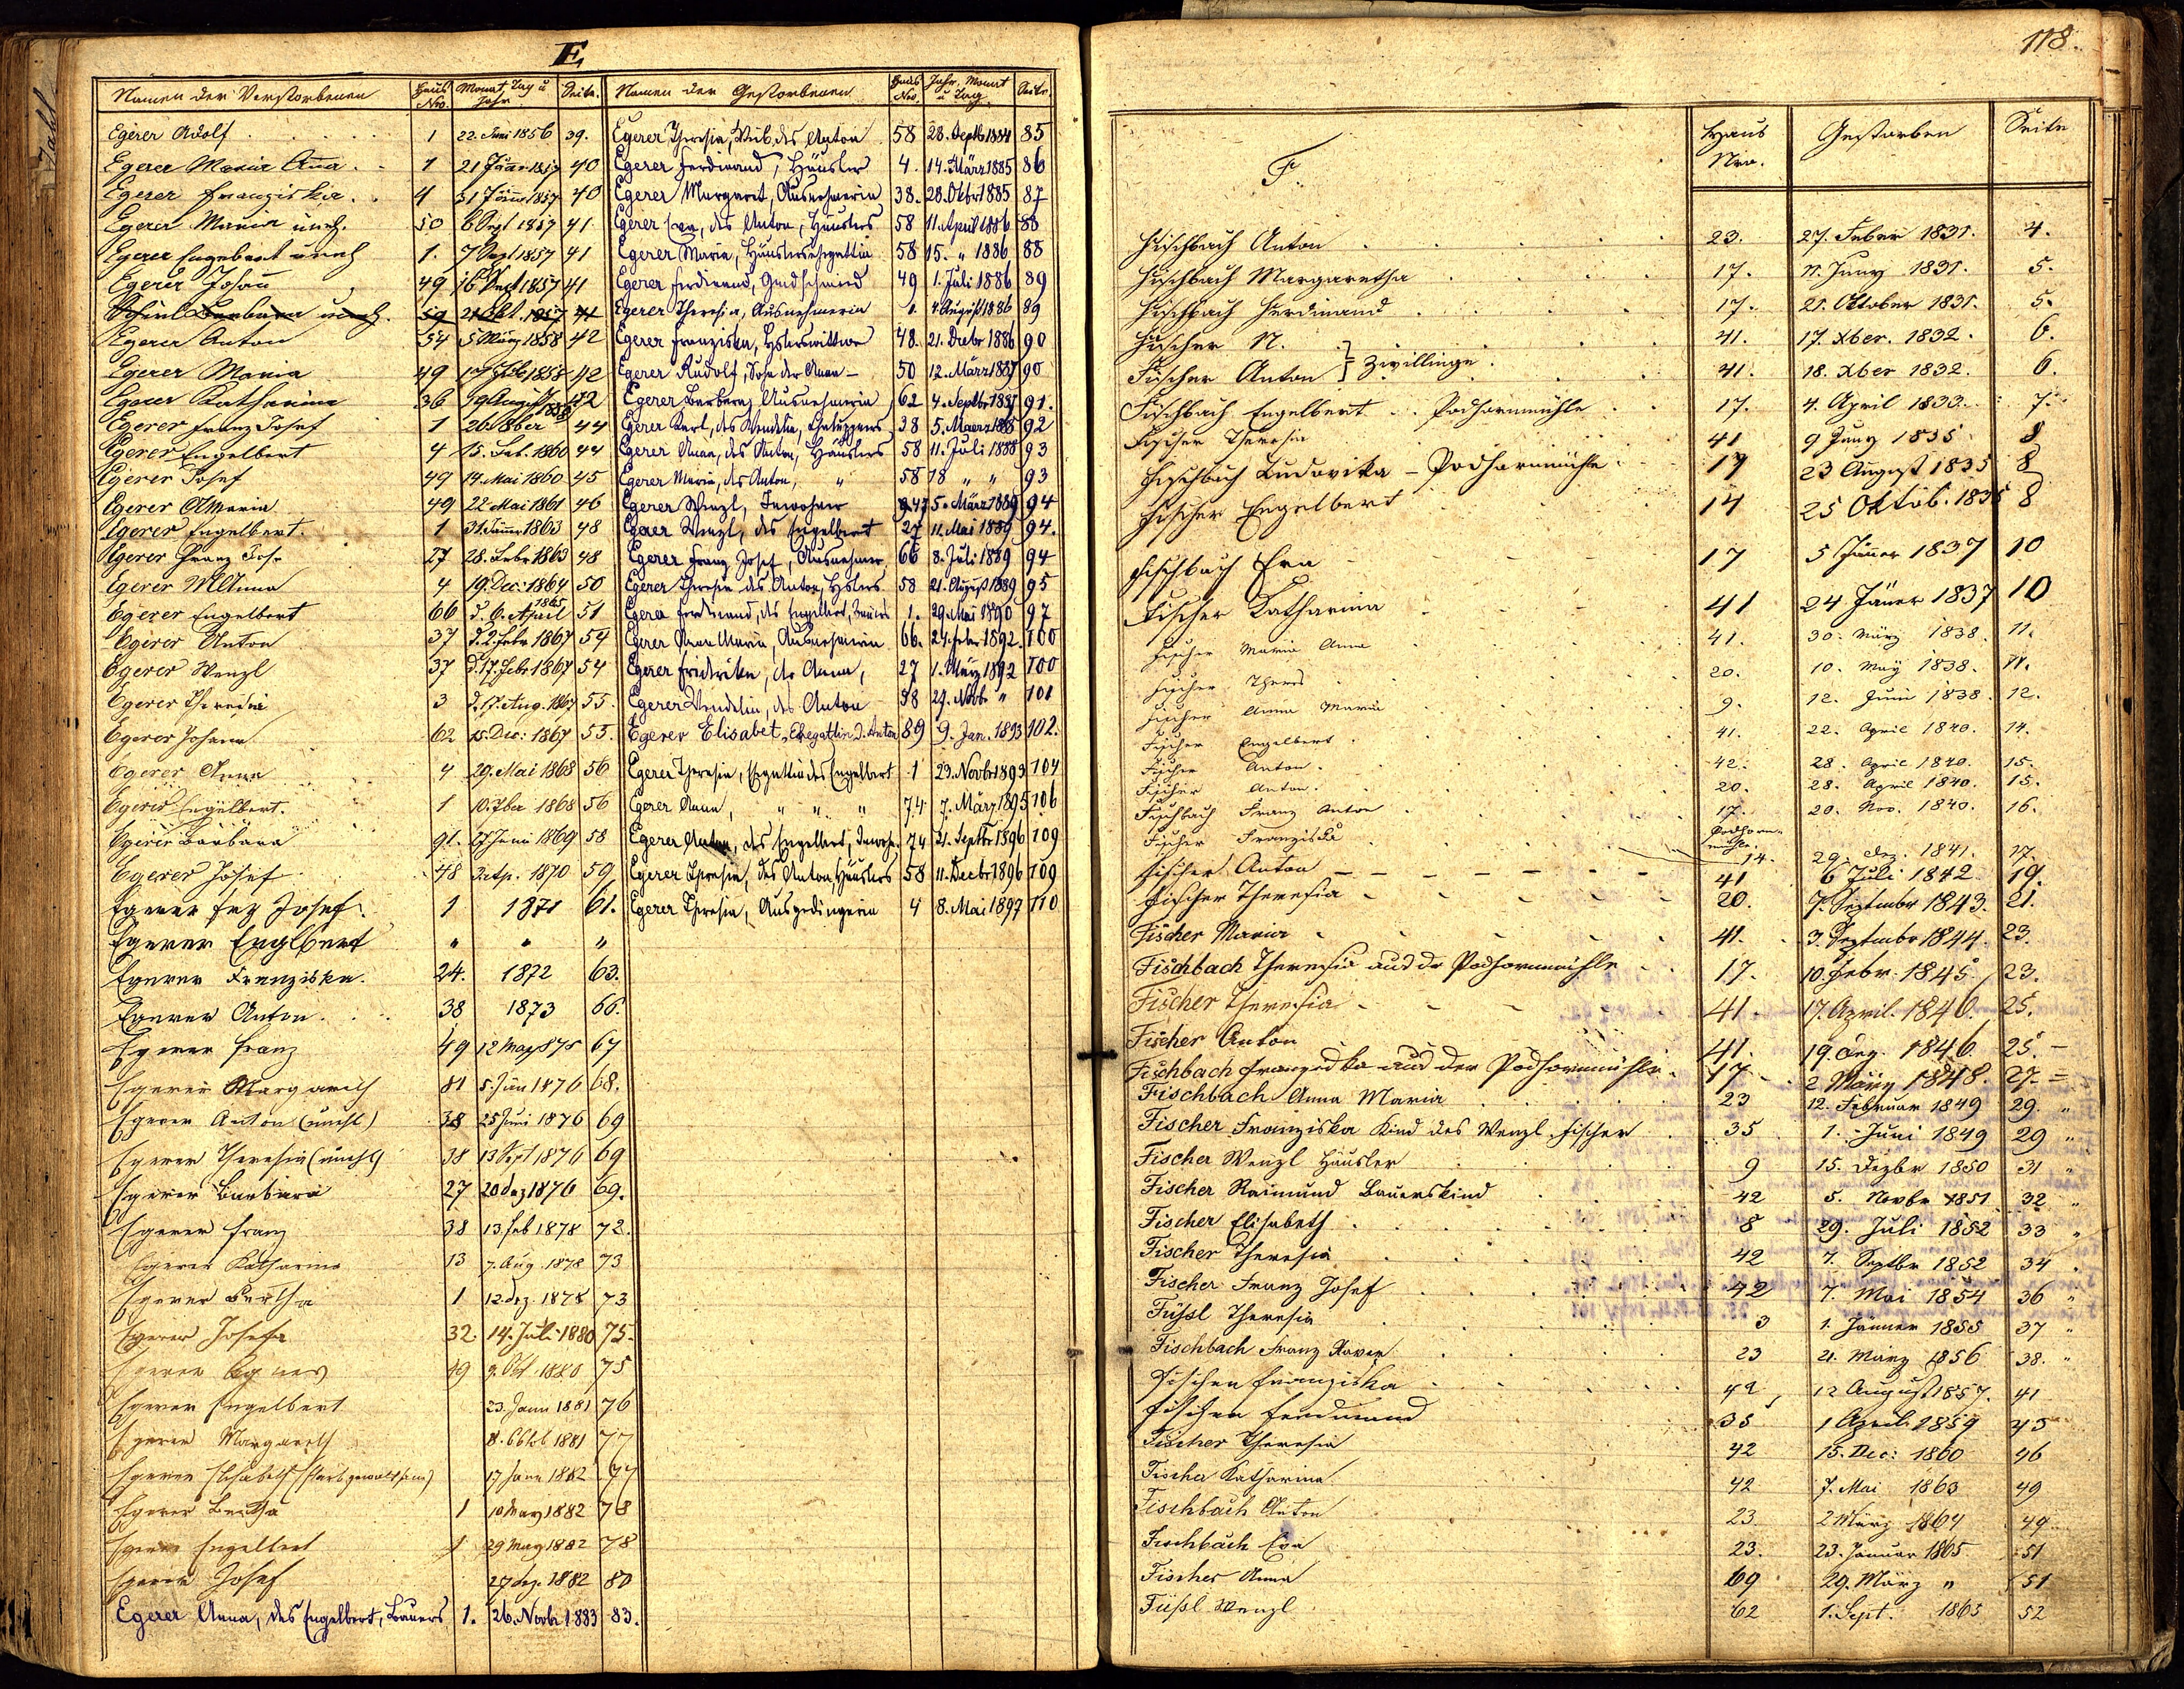 E.
Namen der Verstorbenen Haus Nro. Monat, Tag u Jahr Seite.
Egerer Adolf 1 22. Juni 1856 39.
Egerer Maria Ana 1 21 Jänr 1857 40
Egerer Franziska 4 31 Jänr 1857 40
Egerer Maria uneh. 50 6 Sept 1857 41
Egerer Engelbert uneh 1. 7 Sept 1857 41
Egerer Johañ 49 16 Sept 1857 41
Barbara uneh. 50 21 Okt. 1857 41
Egerer Anton 54 5 März 1858 42
Egerer Maria 49 1858 42
Egerer Katharina 36 19 August 1858 42
Egerer Franz Josef 1 26 44
Egerer Engelbert 4 15. 1860 44
Egerer Josef 49 14. Mai 1860 45
Egerer AMaria 49 22 Mai 1861 46
Egerer Engelbert. 1 31. Jänn. 1863 48
Egerer Franz Jos. 27 28. Febr 1863 48
Egerer MAnna 4 19. Dec: 1864 50
Egerer Engelbert 66 d. 6. April 1865 51
Egerer Anton 37 d. 2. Febr 1867 54
Egerer Wenzl 37 d. 17. Febr 1867 54
Egerer Theresia 3 d. 17. Aug. 1867 55.
Egerer Johann 62 15. Dec: 1867 55.
Egerer Anna 4 29. Mai 1868 56
Egerer Engelbert. 1 10. 1868 56
Egerer Barbara 91. 27 Juni 1869 58
Egerer Josef 48 1870 59
Egerer Frz Josef. 1 1871 61.
Egerer Englbert " " "
Egerer Franziska. 24. 1872 63.
Egerer Anton. 38 1873 66.
Egerer Franz 49 12 May 875 67
Egerer Margareth 81 5. Jän 1876 68.
Egerer Anton (unehl) 38 25 Juni 1876 69
Egerer Theresia (unehl) 38 13 Sept 1876 69
Egerer Barbara 27 20 dez 1876 69.
Egerer Franz 38 13. Feb 1878 72.
Egerer Katharina 13 7. Aug. 1878 73
Egerer Bertha 1 12. dez. 1878 73
Egerer Josefa 32. 14. Juli 1880 75.
Egerer Agnes 49 9. Okt. 1880 75
Egerer Engelbert 23. Jann 1881 76
Egerer Margareth 8. Oktb 1881 77
Egerer Elisabeth 17 Jann 1882 77
Egerer Bertha 1 10 May 1882 78
Egerer Engelbert 1 29 May 1882 78
Egerer Josef 27 dez. 1882 80
Egerer Anna, des Engelbert, Bauers 1. 26. Novbr 1883 83.
Namen der Gestorbenen Haus Nro. Jahr, Monat u Tag. Seite
Egerer Theresia, Weib des Anton 58 28. Septb 1884 85
Egerer Ferdinand, Häusler 4. 14. März 1885 86
Egerer Margaret, Ausnehmerin 38. 28. Oktbr 1885 87
Egerer Eva, des Anton, Häuslers 58 11. April 1886 88
Egerer Maria, Häuslersehegattin 58 15. " 1886 88
Egerer Ferdinand, 49 1. Juli 1886 89
Egerer Theresia, Ausnehmerin 1. 4. August 1886 89
Egerer Franziska, Hslerswittwe 48. 21. Decbr 1886 90
Egerer Rudolf, Sohn der Anna - 50 12. März 1887 90
Egerer Barbara, Ausnehmerin 62 4. Septbr 1887 91.
Egerer Karl, des Wendelin, 38 5. Maerz 1888 92
Egerer Anna, des Anton, Häuslers 58 11. Juli 1888 93
Egerer Maria, des Anton, " 58 18 " " 93
Egerer Wenzl, Inwohner 47 5. März 1889 94
Egerer Wenzl, des Engelbert 27 11. Mai 1889 94.
Egerer Franz Josef, Ausnehmer 66 8. Juli 1889 94
Egerer Theresia des Anton, Hslers 58 21. August 1889 95
Egerer Ferdinand, des Engelbert, Bauers 1. 29. Mai 1890 97
Egerer Anna Maria, Ausnehmerin 66. 24. Febr 1892. 100
Egerer Friedrika, der Anna, 27 1. März 1892 100
Egerer Wendelin, des Anton 58 29. Novb " 101
Egerer Elisabet, Ehegattin d. Anton 89 9. Jan. 1893 102.
Egerer Theresia, Ehgattin des Engelbert 1 23. Novbr 1893 104
Egerer Anna, " " " 74 7. März 1895 106
Egerer Anton, des Engelbert, Inwoh. 74 21. Septbr 1896 109
Egerer Theresia, des Anton, Häuslers 58 11. Decbr 1896 109
Egerer Theresia, Ausgedingerin 4 8. Mai 1897 110
118.
F. Haus Nro. Gestorben Seite
Fischbach Anton 23. 27. Feber 1831. 4.
Fischbach Margaretha 17. 11. Juny 1831. 5.
Fischbach Ferdinand 17. 21. Oktober 1831. 5.
Fischer N. 41. 17. Xber. 1832. 6.
Fischer Anton } Zwillinge. 41. 18. Xber 1832. 6.
Fischbach Engelbert Podhornmühle 17. 4. April 1833. 7.
Fischer Theresia 41 9 Juny 1835 8
Fischbach Ludovika - Podhornmühle 17 23 August 1835 8
Fischer Engelbert 14 25 Oktob. 1835 8
Fischbach Eva 17 5 Jäner 1837 10
Fischer Katharina 41 24 Jäner 1837 10
Fischer Maria Anna 41. 30. März 1838. 11.
Fischer Theres 20. 10. May 1838. 11.
Fischer Anna Maria 9. 12. Juni 1838. 12.
Fischer Engelbert 41. 22. April 1840. 14.
Fischer Anton. 42. 28. April 1840. 15.
Fischer Anton. 20. 28. April 1840. 15.
Fischbach Franz Anton 17. 20. Nov. 1840. 16.
Fischer Franziska Podhornmühle. 14. 29. dez. 1841. 17.
Fischer Anton 41 6 Juli 1842. 19.
Fischer Theresia 20. 7. Septembr 1843. 21.
Fischer Maria 41. 3. Septembr 1844. 23.
Fischbach Theresia aus der Podhornmühle 17. 10. Febr. 1845. 23.
Fischer Theresia 41. 17. April. 1846. 25.
Fischer Anton 41. 19. Aug. 1846. 25.
Fischbach Franziska aus der Podhornmühle. 17 2 März 1848. 27.
Fischbach Anna Maria 23 12. Februar 1849 29. "
Fischer Franziska Kind des Wenzl Fischer 35 1. Juni 1849 29 "
Fischer Wenzl Häusler 9 15. Dezbr 1850 31 "
Fischer Raimund Bauerskind 42 5. Novbr 1851 32 "
Fischer Elisabeth 8 29. Juli 1852 33 "
Fischer Theresia 42 7. Septbr 1852 34 "
Fischer Franz Josef 42 7. Mai 1854 36 "
Füßl Theresia 3 1. Jänner 1855 37 "
Fischbach Franz Xaver 23 21. März 1856 38. "
Fischer Franziska 42 12 August 1857. 41
Fischer Ferdinand 35 1 April 1859 43
Fischer Theresia 42 15. Dec: 1860 46
Fischer Katharina 42 7. Mai 1863 49
Fischbach Anton 23 2 März 1864 49
Fischbach Eva 23. 23. Januar 1865 51
Fischer Anna 69 29. März " 51
Füßl Wenzl 62 1. Sept. 1865 52